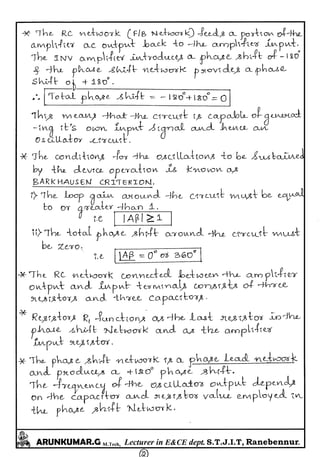 * The RC network (F/B Network) feeds a portion of the
amplifier a.c output back to the amplifier input.
The INV amplifier introduces a phase shift of -180°
& the phase shift network provides a phase
Shift of +180°.
∴ Total phase shift = -180°+180° = 0
This means that the circuit is capable of generat
-ing it's own input signal and hence an
Oscillator circuit.
* The conditions for the oscillations to be Sustained
by the device operation is known as
BARKHAUSEN CRITERION.
i) The loop gain around the circuit must be equal
to or greater than 1.
i.e |Aβ| ≥ 1
ii) The total phase shift around the circuit must
be zero.
i.e |Aβ = 0° or 360°
* The RC network connected between the amplifier
output and input terminals consists of three
resistors and three capacitors.
* Resistors R1 functions as the last resistor in the
phase shift Network and as the amplifier
input resistor.
* The phase shift network is a phase lead network
and produces a +180° phase shift.
The frequency of the oscillator output depends
on the capacitor and resistor value employed in
the phase shift Network.
ARUNKUMAR.G M.Tech, Lecturer in E&CE dept. S.T.J.I.T, Ranebennur.